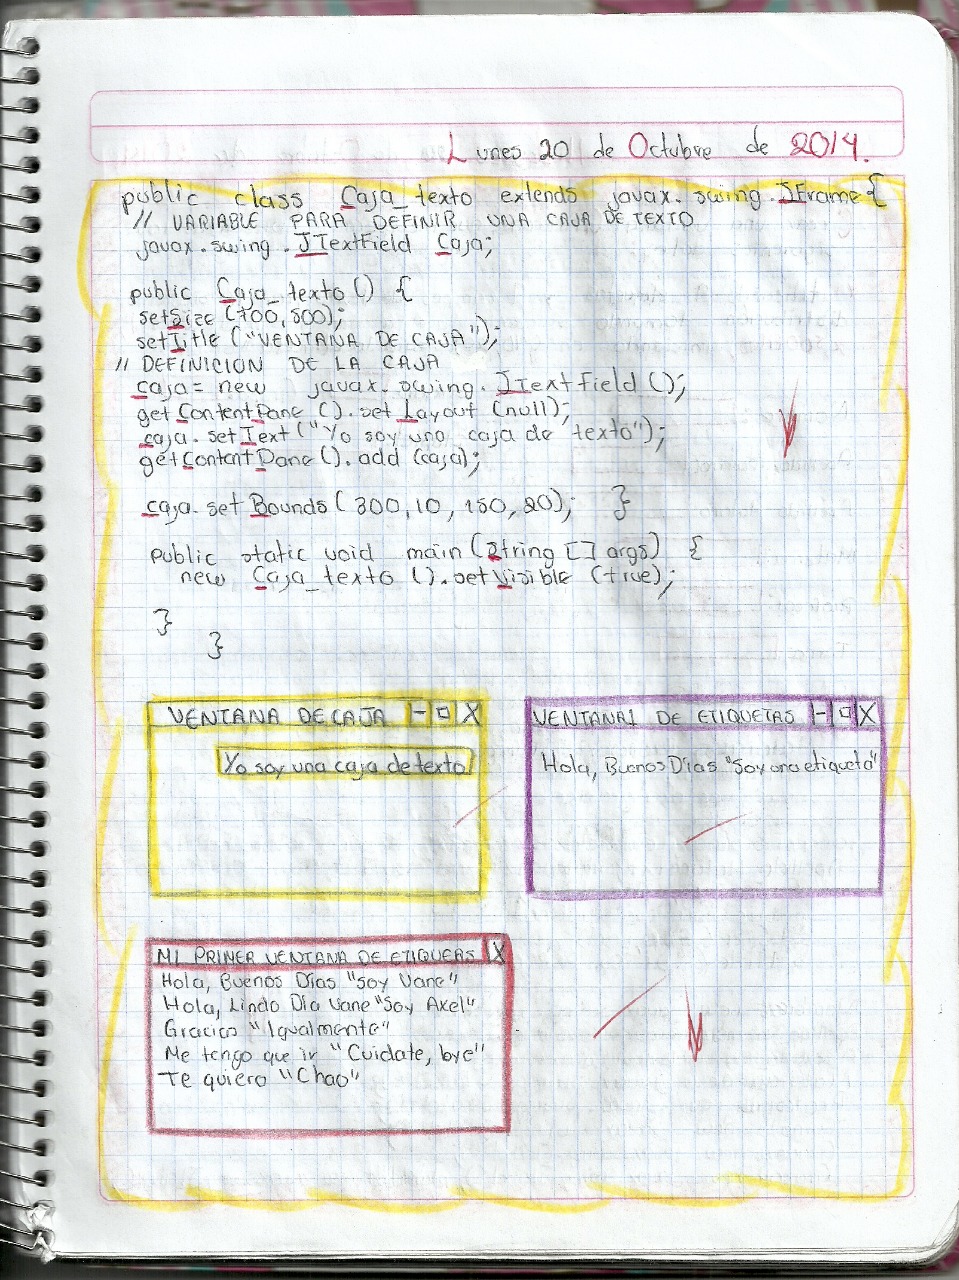 Lunes 20 de Octubre de 2014.
public class Caja_texto extends javax.swing.JFrame {
// VARIABLE PARA DEFINIR UNA CAJA DE TEXTO
javax.swing.JTextField Caja;
public Caja_texto () {
setSize (700,500);
setTitle ("VENTANA DE CAJA");
// DEFINICION DE LA CAJA
caja= new javax.swing.JTextField ();
getContentPane ().setLayout (null);
caja.setText ("Yo soy una caja de texto");
getContentPane ().add (caja);
caja.setBounds (300,10,150,20); }
public static void main (String [] args) {
new Caja_texto ().setVisible (true);
}
}
VENTANA DE CAJA - □ X
Yo soy una caja de texto
VENTANA1 DE ETIQUETAS - □ X
Hola, Buenos Días "Soy una etiqueta"
MI PRIMER VENTANA DE ETIQUEAS X
Hola, Buenos Días "Soy Vane"
Hola, Lindo Día Vane "Soy Axel"
Gracias "Igualmente"
Me tengo que ir "Cuidate, bye"
Te quiero "Chao"